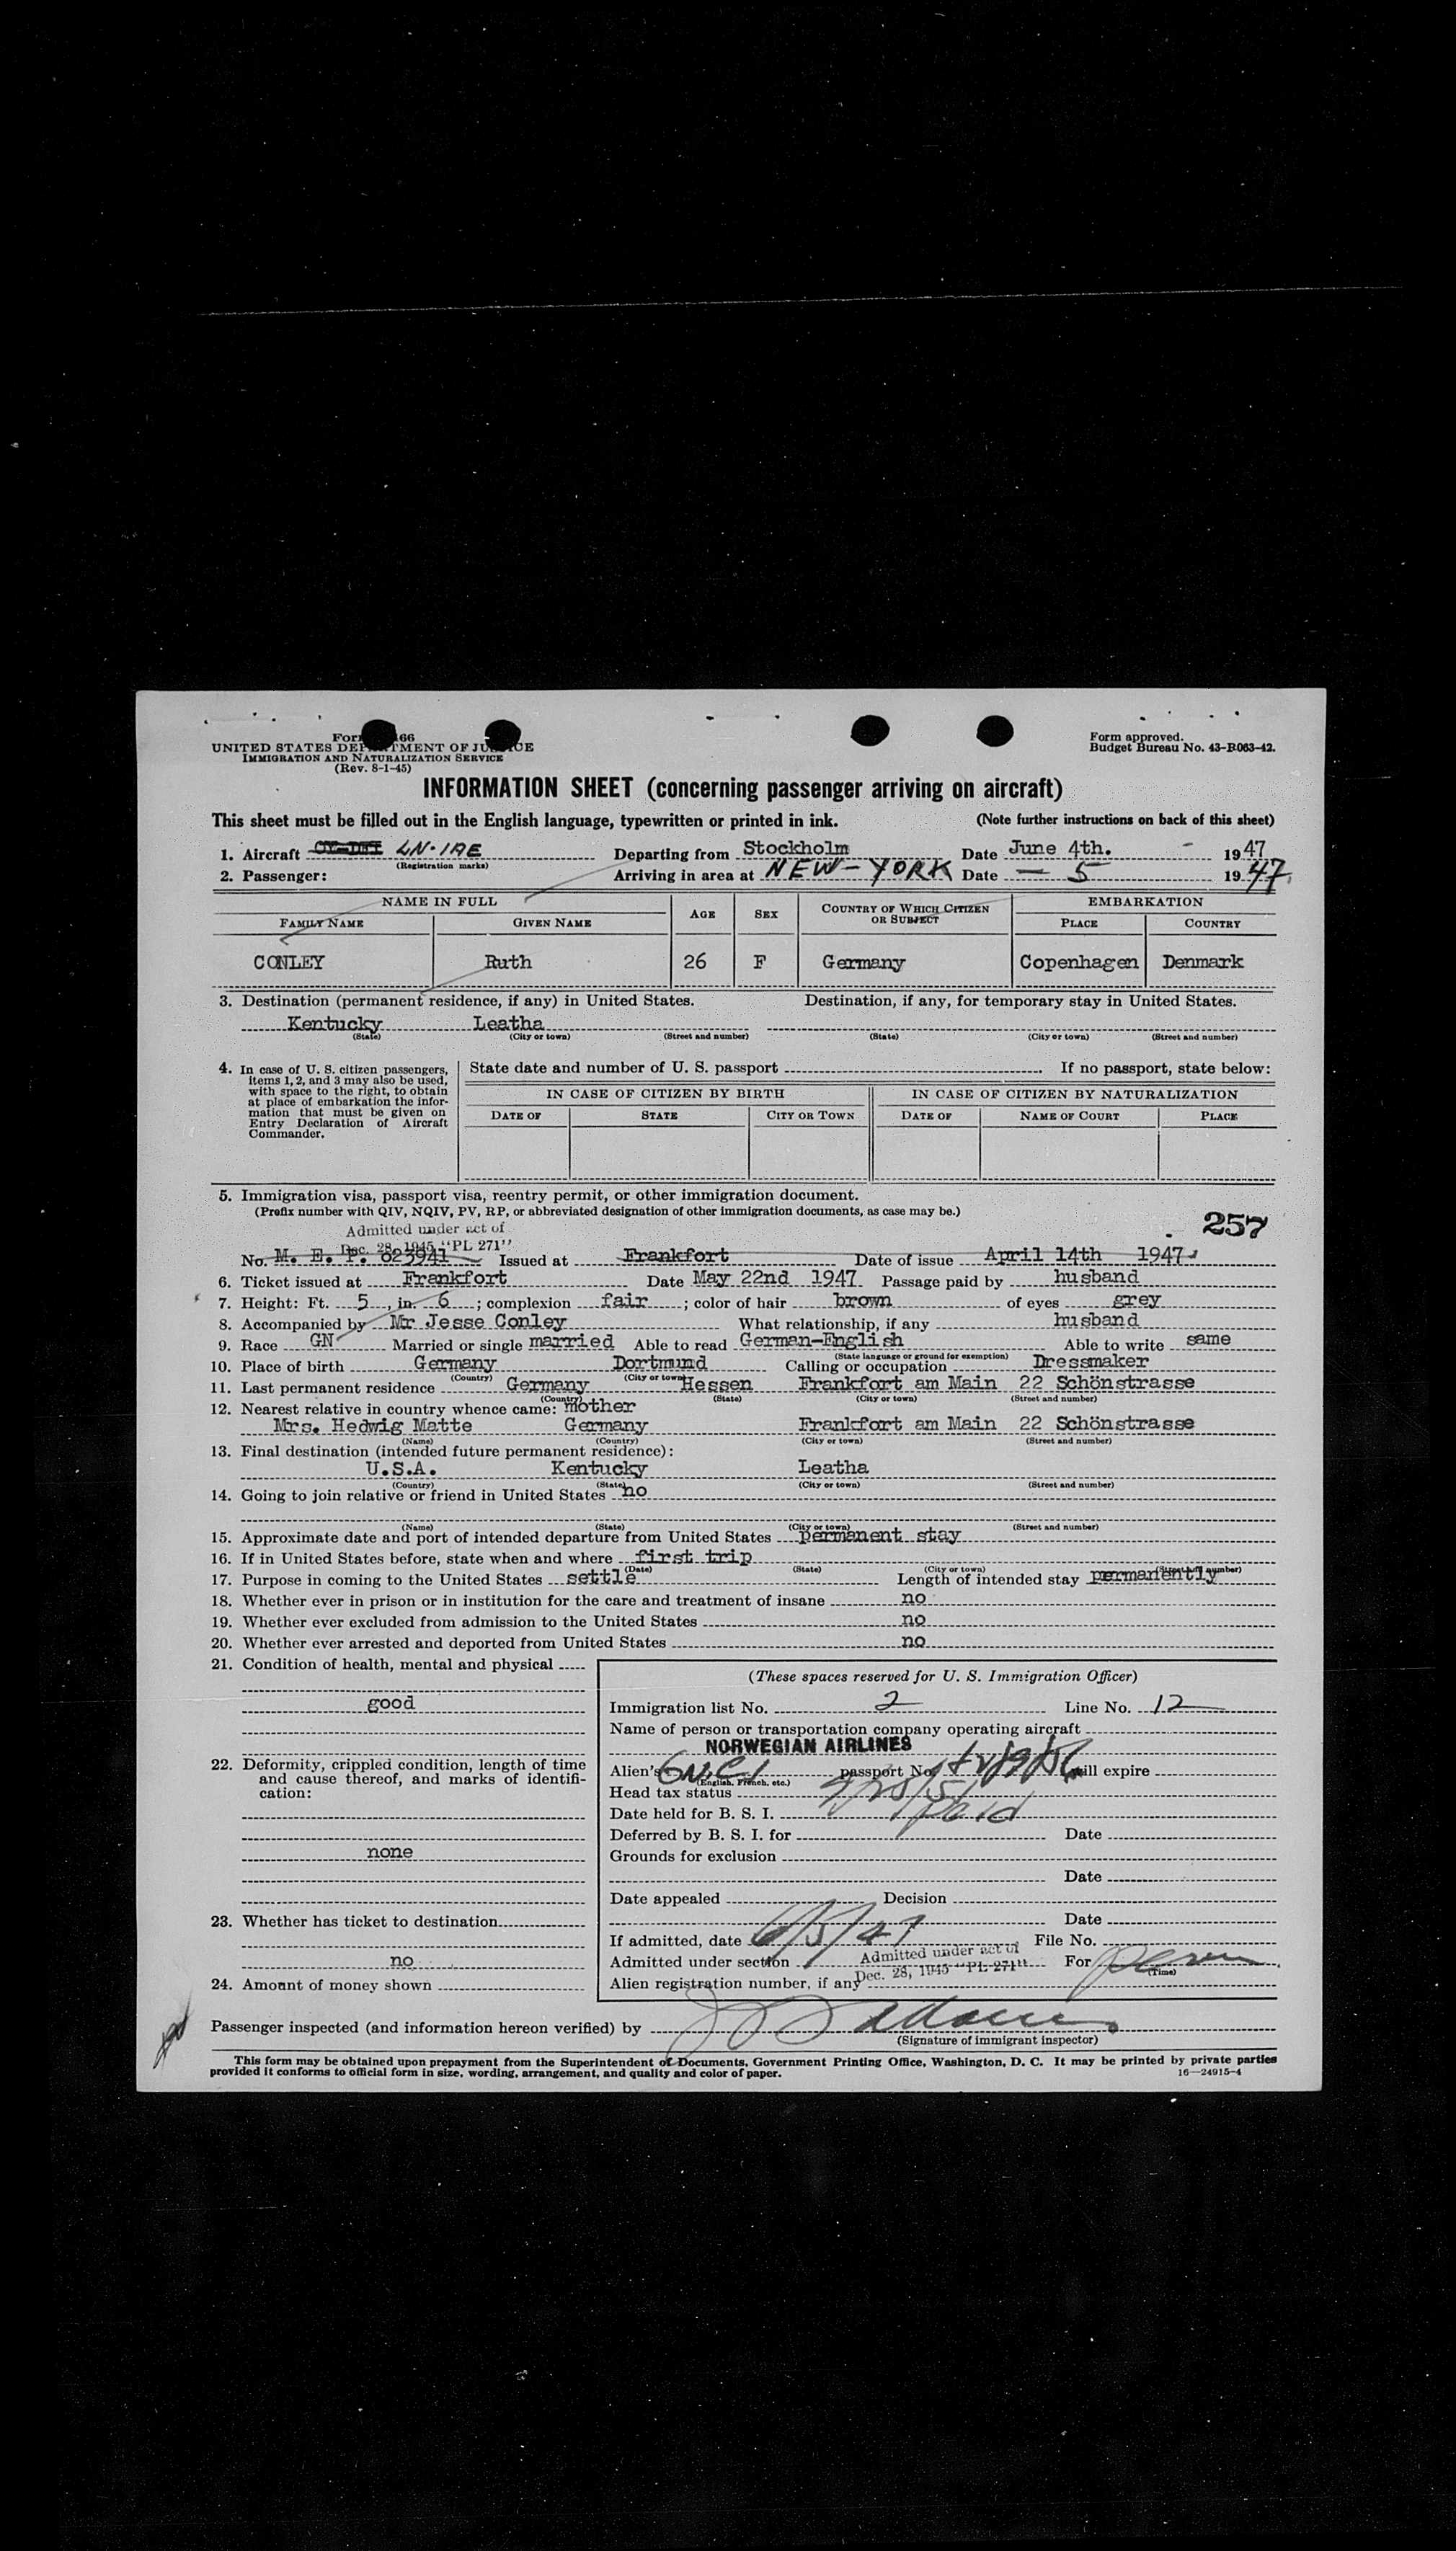 Form 66
UNITED STATES DEPARTMENT OF JUSTICE
IMMIGRATION AND NATURALIZATION SERVICE
(Rev. 8-1-45)
Form approved.
Budget Bureau No. 43-R063-42.
INFORMATION SHEET (concerning passenger arriving on aircraft)
This sheet must be filled out in the English language, typewritten or printed in ink. (Note further instructions on back of this sheet)
1. Aircraft LN-IAE Departing from Stockholm Date June 4th. - 1947
(Registration marks)
2. Passenger: Arriving in area at NEW-YORK Date — 5 1947
NAME IN FULL AGE SEX COUNTRY OF WHICH CITIZEN OR SUBJECT EMBARKATION
FAMILY NAME GIVEN NAME PLACE COUNTRY
CONLEY Ruth 26 F Germany Copenhagen Denmark
3. Destination (permanent residence, if any) in United States. Destination, if any, for temporary stay in United States.
Kentucky Leatha
(State) (City or town) (Street and number) (State) (City or town) (Street and number)
4. In case of U. S. citizen passengers, items 1, 2, and 3 may also be used, with space to the right, to obtain at place of embarkation the information that must be given on Entry Declaration of Aircraft Commander.
State date and number of U. S. passport If no passport, state below:
IN CASE OF CITIZEN BY BIRTH IN CASE OF CITIZEN BY NATURALIZATION
DATE OF STATE CITY OR TOWN DATE OF NAME OF COURT PLACE
5. Immigration visa, passport visa, reentry permit, or other immigration document.
(Prefix number with QIV, NQIV, PV, RP, or abbreviated designation of other immigration documents, as case may be.)
257
Admitted under act of
Dec. 28, 1945 "PL 271"
No. M. E. P. 023941 Issued at Frankfort Date of issue April 14th 1947
6. Ticket issued at Frankfort Date May 22nd 1947 Passage paid by husband
7. Height: Ft. 5, in. 6; complexion fair; color of hair brown of eyes grey
8. Accompanied by Mr Jesse Conley What relationship, if any husband
9. Race GN Married or single married Able to read German-English Able to write same
(State language or ground for exemption)
10. Place of birth Germany Dortmund Calling or occupation Dressmaker
(Country) (City or town)
11. Last permanent residence Germany Hessen Frankfort am Main 22 Schönstrasse
(Country) (State) (City or town) (Street and number)
12. Nearest relative in country whence came: mother
Mrs. Hedwig Matte Germany Frankfort am Main 22 Schönstrasse
(Name) (Country) (City or town) (Street and number)
13. Final destination (intended future permanent residence):
U.S.A. Kentucky Leatha
(Country) (State) (City or town) (Street and number)
14. Going to join relative or friend in United States no
(Name) (State) (City or town) (Street and number)
15. Approximate date and port of intended departure from United States permanent stay
16. If in United States before, state when and where first trip
(Date) (State) (City or town) (Street and number)
17. Purpose in coming to the United States settle Length of intended stay permanently
18. Whether ever in prison or in institution for the care and treatment of insane no
19. Whether ever excluded from admission to the United States no
20. Whether ever arrested and deported from United States no
21. Condition of health, mental and physical
good
22. Deformity, crippled condition, length of time and cause thereof, and marks of identification:
none
23. Whether has ticket to destination
no
24. Amount of money shown
(These spaces reserved for U. S. Immigration Officer)
Immigration list No. 2 Line No. 12
Name of person or transportation company operating aircraft
NORWEGIAN AIRLINES
Alien's passport No. will expire
(English, French, etc.)
Head tax status
Date held for B. S. I. paid
Deferred by B. S. I. for Date
Grounds for exclusion
Date
Date appealed Decision
Date
If admitted, date 6/5/47 File No.
Admitted under section Admitted under act of For perm
Dec. 28, 1945 "PL 271" (Time)
Alien registration number, if any
Passenger inspected (and information hereon verified) by
(Signature of immigrant inspector)
This form may be obtained upon prepayment from the Superintendent of Documents, Government Printing Office, Washington, D. C. It may be printed by private parties
provided it conforms to official form in size, wording, arrangement, and quality and color of paper. 16—24915-4